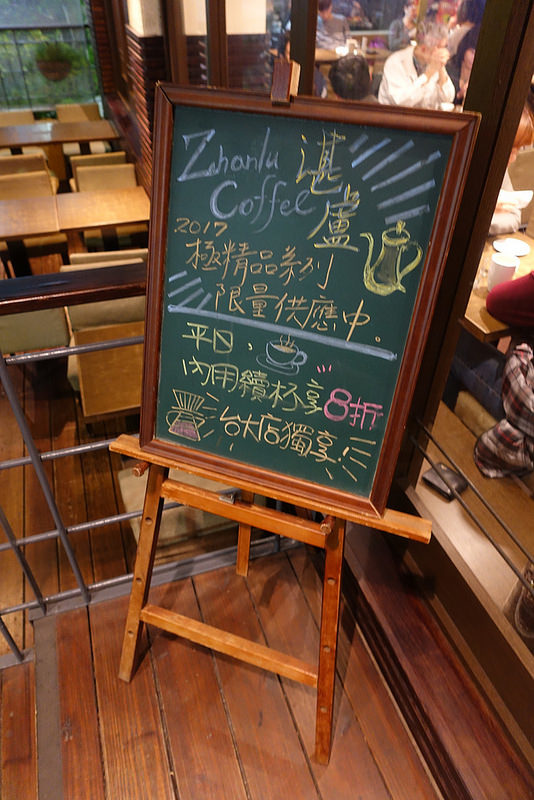 Zhanlu 湛盧
Coffee
2017
極精品系列
限量供應中。
平日,
內用續杯享8折
台大店獨享